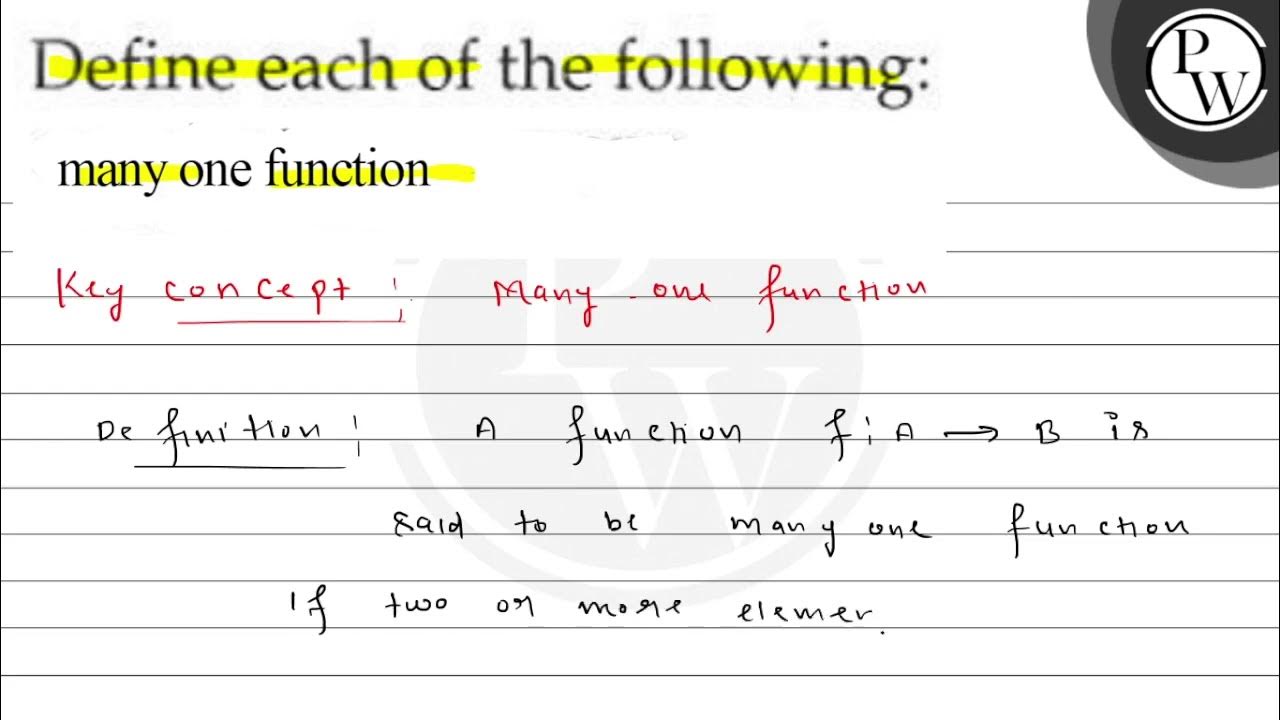 Define each of the following:
PW
many one function
Key concept : Many-one function
Definition : A function f : A → B is
said to be many one function
If two or more elemer